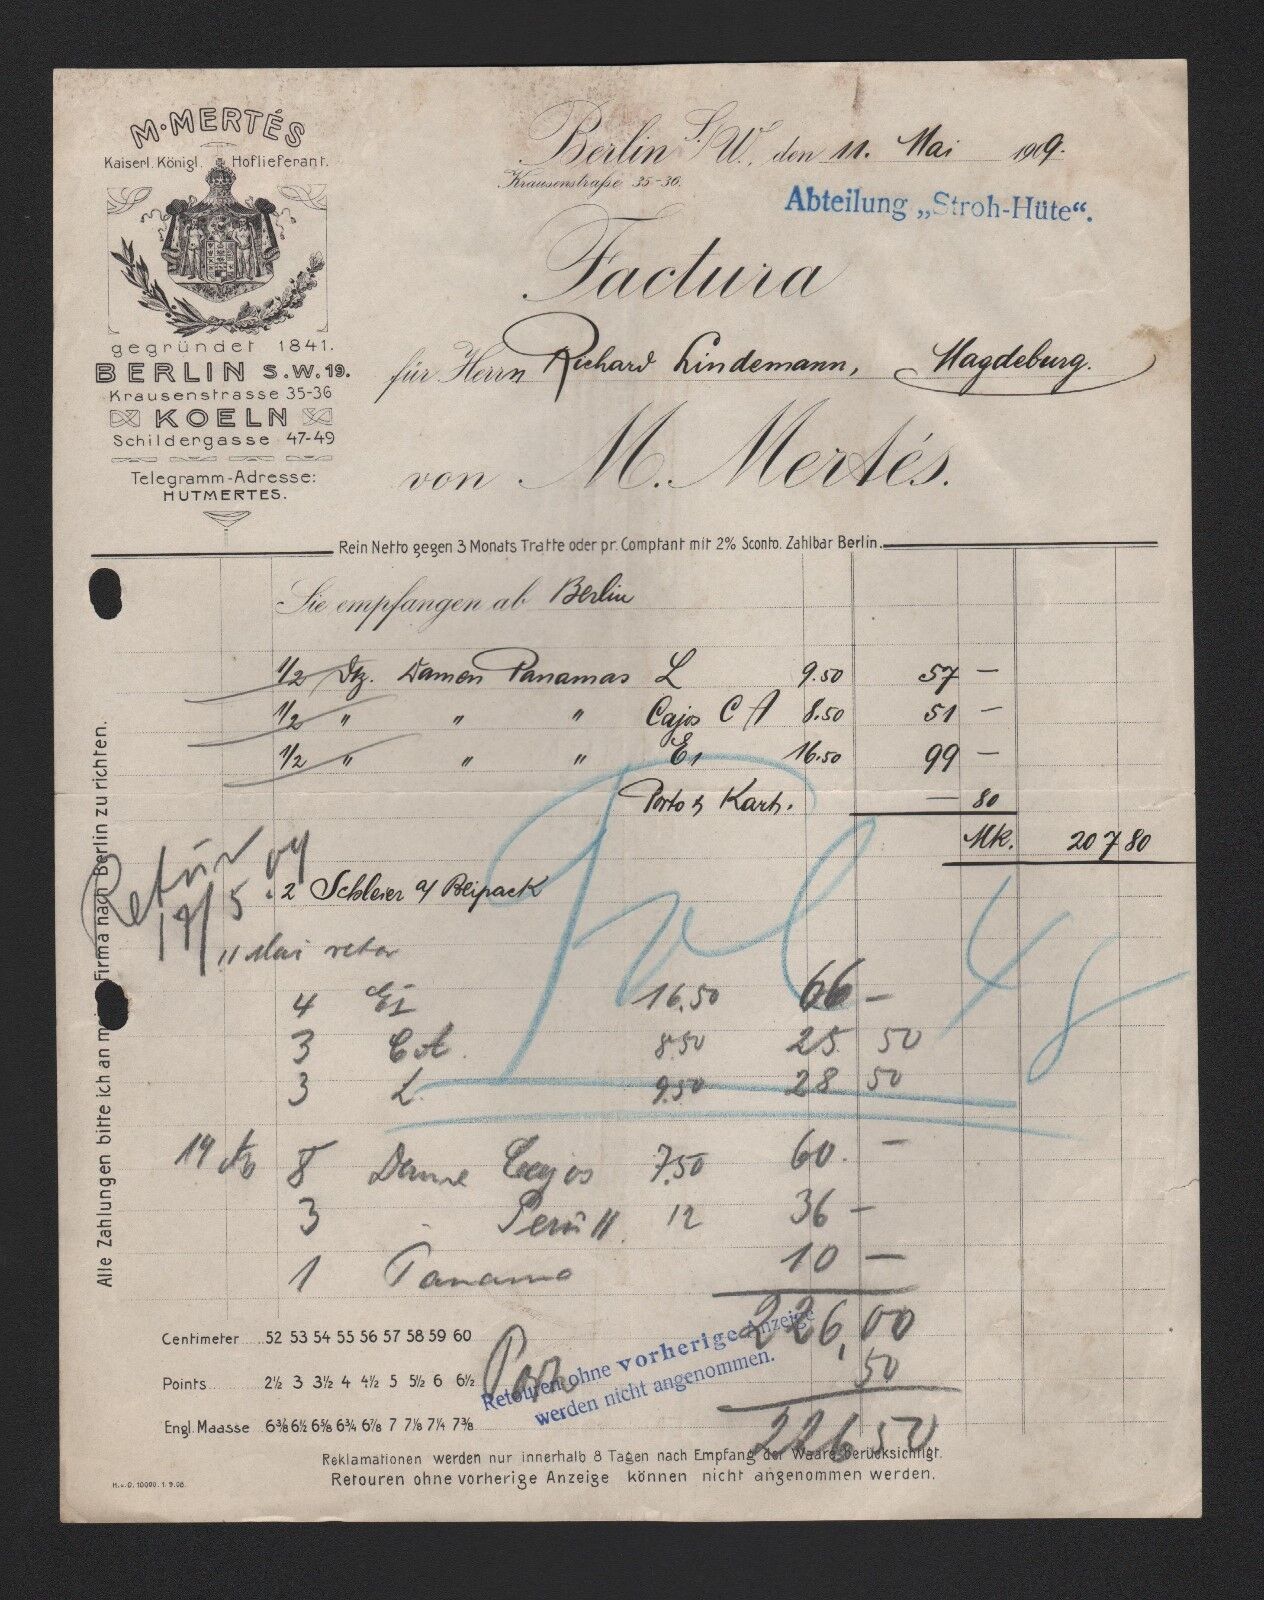 M. MERTÉS
Kaiserl. Königl. Hoflieferant.
gegründet 1841.
BERLIN S.W. 19.
Krausenstrasse 35-36
KOELN
Schildergasse 47-49
Telegramm-Adresse:
HUTMERTES.
Berlin S/W., den 11. Mai 1909.
Krausenstraße 35-36.
Abteilung „Stroh-Hüte“.
Factura
für Herrn Richard Lindemann, Magdeburg.
von M. Mertés.
Rein Netto gegen 3 Monats Tratte oder pr. Comptant mit 2% Sconto. Zahlbar Berlin.
Sie empfangen ab Berlin
1/2 Dtz. Damen Panamas L 9.50 57 —
1/2 " " " Cajos C A 8.50 51 —
1/2 " " " E, 16.50 99 —
Porto & Kart. — 80
Mk. 207 80
2 Schleier a/ Beipack
Retour 19/5 09
11 Mai retour
4 EI 16.50 66 —
3 CA. 8.50 25 50
3 L. 9.50 28 50
19 8 Dame Cajos 7.50 60. —
3 " Perú II. 12 36 —
1 Panama 10 —
226,00
Porto 50
226 50
48
Retouren ohne vorherige Anzeige
werden nicht angenommen.
Alle Zahlungen bitte ich an m Firma nach Berlin zu richten.
Centimeter 52 53 54 55 56 57 58 59 60
Points 2½ 3 3½ 4 4½ 5 5½ 6 6½
Engl. Maasse 6⅜ 6½ 6⅝ 6¾ 6⅞ 7 7⅛ 7¼ 7⅜
Reklamationen werden nur innerhalb 8 Tagen nach Empfang der Waare berücksichtigt.
Retouren ohne vorherige Anzeige können nicht angenommen werden.
H. & O. 10000. 1. 9. 08.